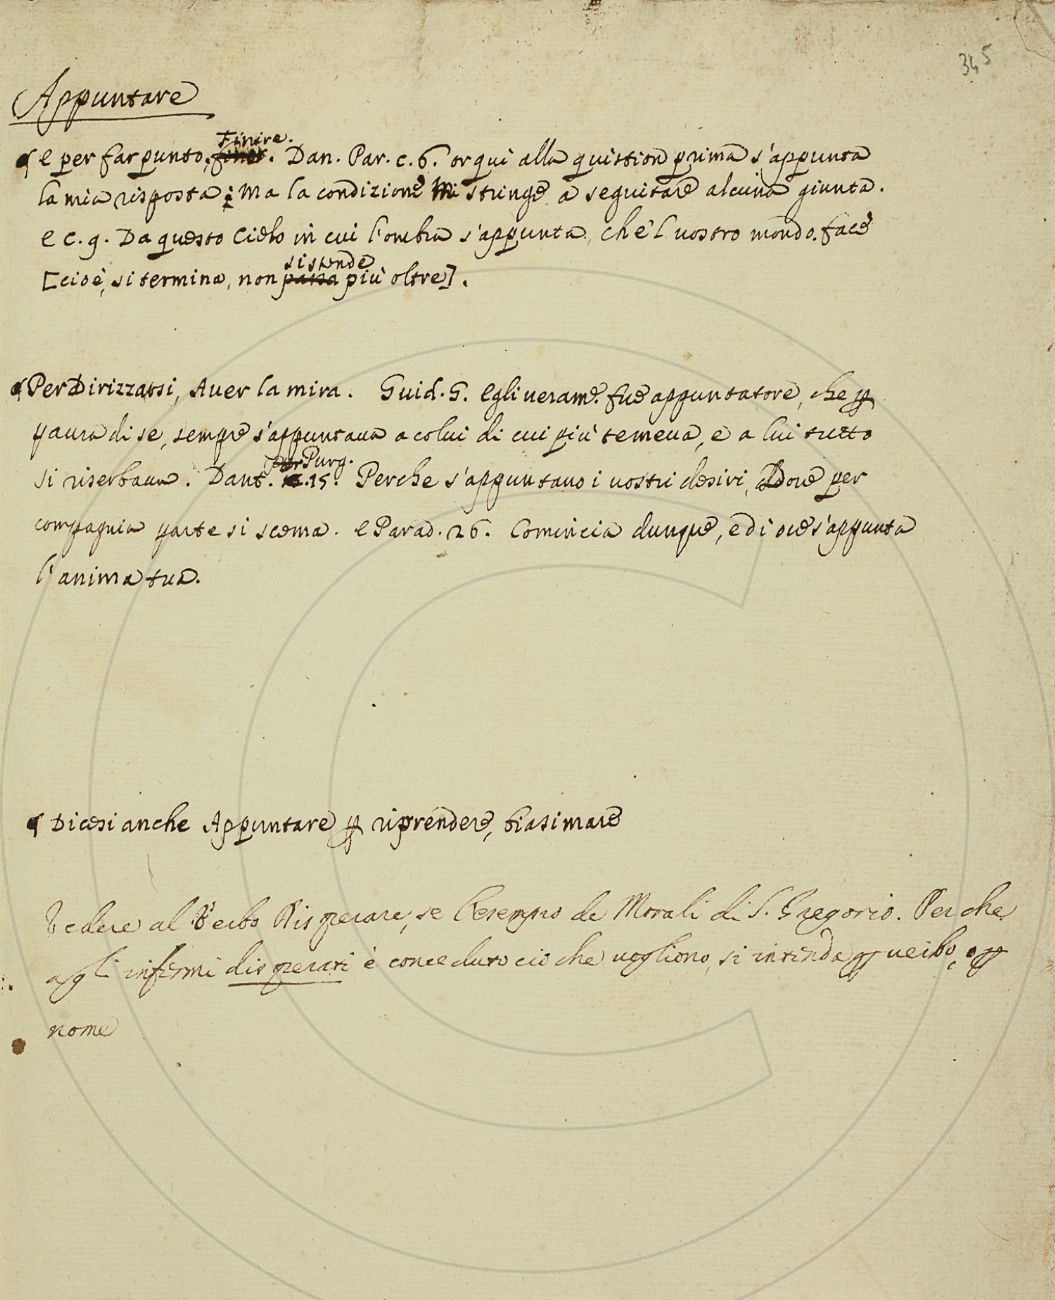 345
Appuntare
¶ E per far punto, Finire. Dan. Par. c. 6. or qui alla quistion prima s'appunta
la mia risposta; Ma la condizione Mi stringe a seguitare alcuna giunta.
E c. 9. Da questo Cielo in cui l'ombra s'appunta, che 'l vostro mondo face
[cioè, si termina, non si stende più oltre].
¶ Per Dirizzarsi, Aver la mira. Guid. G. Egli veram.e fue appuntatore, che p
paura di se, sempre s'appuntava a colui di cui più temeva, e a lui tutto
si riserbava. Dant. Purg. 15. Perche s'appuntano i vostri desiri, Dove per
compagnia parte si scema. E Parad. 26. Comincia dunque, e di ove s'appunta
l'anima tua.
¶ Dicesi anche Appuntare p riprendere, biasimare
Vedere al Verbo Disperare, se l'esempio de Morali di S. Gregorio. Perche
agli infermi disperati è conceduto cio che vogliono, si intenda p verbo, o p
nome